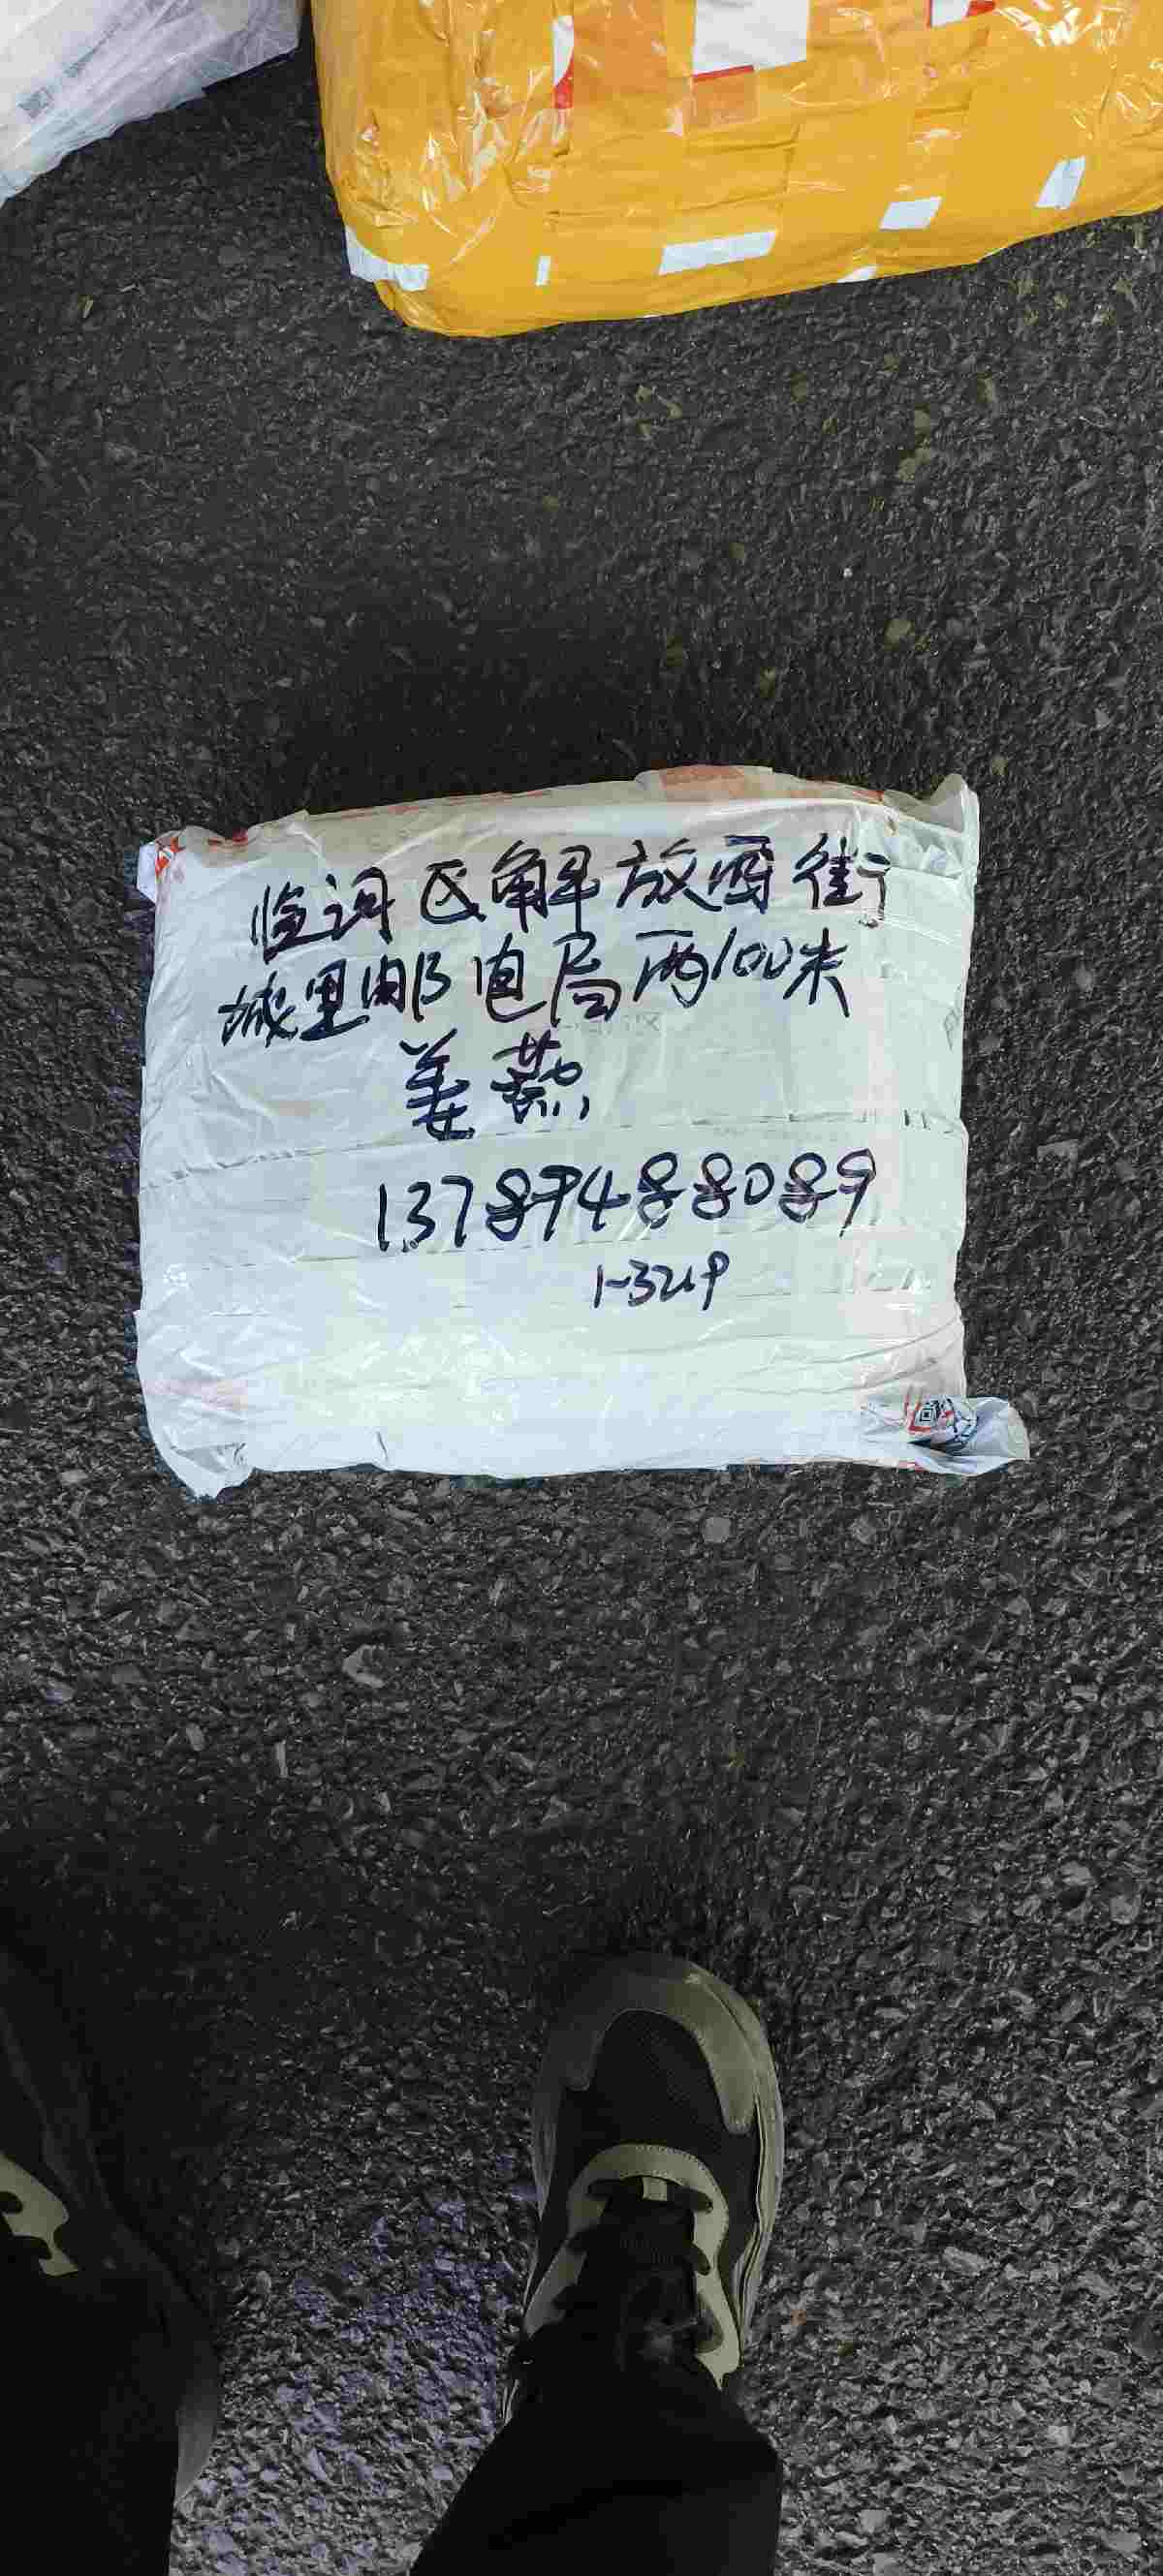 临渭区解放西街
城里邮电局西100米
姜燕
13789488089
1-3219